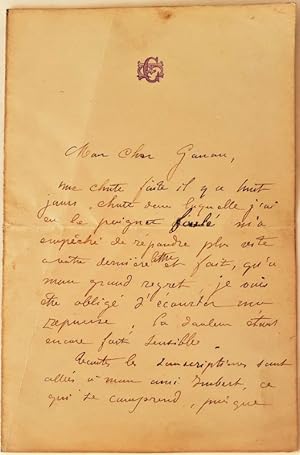 Mon cher Ganau,
une chute faite il y a huit
jours, chute dans laquelle j'ai
eu le poignet foulé m'a
empêché de répondre plus vite
à votre dernière lettre et fait, qu'à
mon grand regret, je suis
être obligé d'écourter ma
réponse, la douleur étant
encore fort sensible.
Toutes les souscriptions sont
allées à mon ami Imbert, ce
qui se comprend, puisque